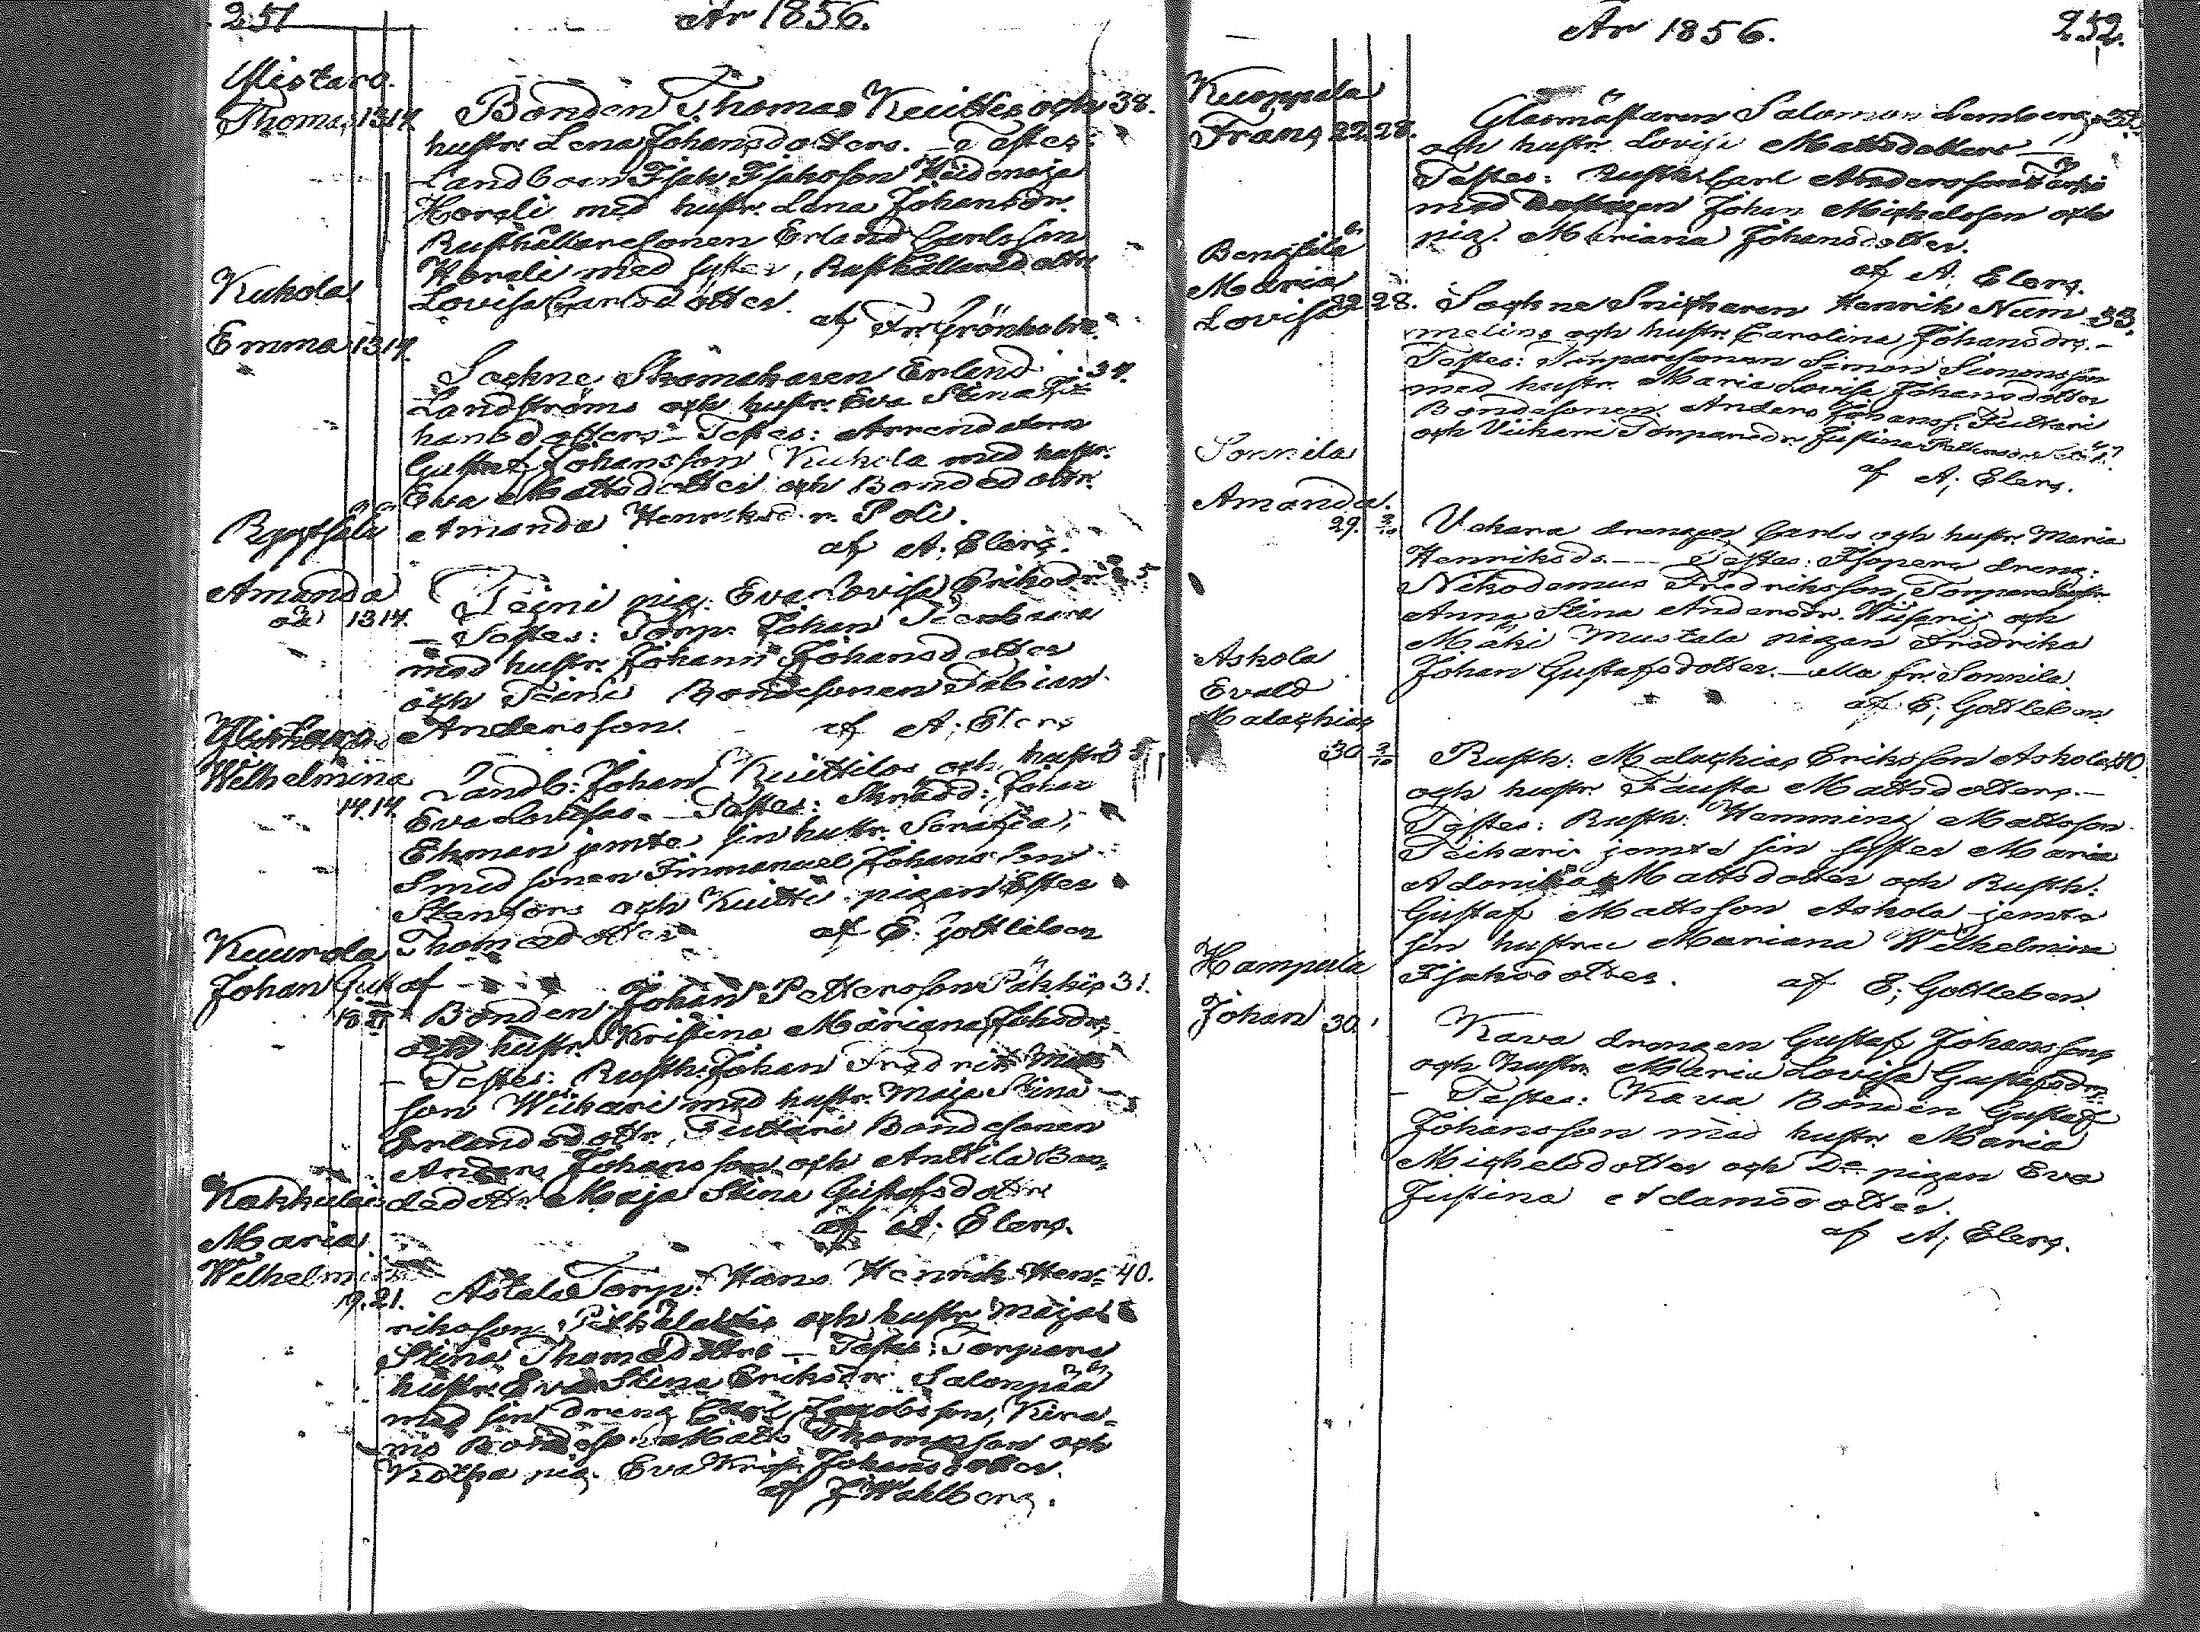 251
År 1856.
Ylistaro.
Thomas 13 14.
Bonden Thomas Kuittis och 38.
hustr. Lena Johansdotters. — Testes
Landboen Isak Isaksson
Horsli med hustr. Lena Johansdr.
Rusthållaresonen Erland Carlsson
Horsli med syster, Rusthållaredottr.
Lovisa Carlsdotter.
af Fr. Grönholm.
Kukola
Emma 13 14.
Sockne Skomakaren Erland 34.
Landströms och hustr. Eva Stina Jo-
hansdotters — Testes: Arrendatorn
Gustaf Johansson Kukola med hustr.
Eva Mattsdotter och Bondedottr.
Amanda Henriksdr. Poli.
af A; Elers.
Amanda
oä 13 14.
Teini pig. Eva Lovisa Eriksdr.
— Testes: Torp. Johan
med hustr. Johanna Johansdotter
och Teini Bondesonen Fabian
Andersson. af A; Elers
Ylistaro
Wilhelmina
14. 14.
Landb: Johan Kuittilas och hustr. 3
Eva Lovisas. — Testes: Skrädd: Johan
Ekman jemte sin hustr. Serafia,
Smed sonen Immanuel Johansson
Stenfors och Kuitti pigan Ester
Thomasdotter af E. Gottleben
Kuurola
Johan Gustaf
18
Bonden Johan Pettersson Päkkis 31.
och hustr. Kristina Mariana Johsdrs.
— Testes: Rusth. Johan Fredrik Matts
son Wichari med hustr. Maja Stina
Erlandsdottr, Tuittari Bondesonen
Anders Johansson och Anttila Bon-
dedottr. Maja Stina Gustafsdottr
af A; Elers.
Kakkulai
Maria
Wilhelmina
19. 21.
Astala Torp: Hans Henrik Hen- 40.
riksson och hustr. Maja
Stina Thomasdotters — Testes: Torpare
hustr. Eva Stina Eriksdr. Salonpää
med sin dreng Carl Jacobsson,
Bondeson Matts Thomasson och
pig. Eva Krist. Johansdotter.
af J Wahlberg.
År 1856.
252.
Kuoppala
Frans 22 28.
Glasmästaren Salomon Lemberg
och hustr. Lovisa Mattsdotters —
Testes: Rusth. Carl Andersson
med Johan Michelsson och
pig. Mariana Johansdotter.
af A; Elers.
Bengtilä
Maria
Lovisa 22 28.
Sockne Snickaren Henrik Num 33.
melins och hustr. Carolina Johansdrs. —
Testes: Torparesonen Simon Simonsson
med hustr. Maria Lovisa Johansdotter
Bondesonen Anders Johanss. Tuittari
och Vichari Torparedr. Justina
af A; Elers.
Sonnila
Amanda.
29. 3/10
Uckara drengen Carls och hustr. Maria
Henriksds. — Testes: Isopere dreng:
Nikodemus Fredriksson, Torparehustr.
Anna Stina Andersdr. och
Mäki Mustala pigan Fredrika
Johan Gustafsdotter. — alla fr. Sonnila.
af E; Gottleben
Askola
Evald
Malachias
30. 3/10
Rusth: Malachias Eriksson Askolas 40.
och hustr. Fausta Mattsdotters. —
Testes: Rusth. Hemming Mattsson
Teikari jemte sin syster Maria
Adonika Mattsdotter och Rusth:
Gustaf Mattsson Askola jemte
sin hustru Mariana Wilhelmina
Isaksdotter. af E; Gottleben.
Hampula
Johan 30.
Kava drengen Gustaf Johanssons
och hustr. Maria Lovisa Gustafsdrs.
— Testes: Kava Bonden Gustaf
Johansson med hustr. Maria
Michelsdotter och D:o pigan Eva
Justina Adamsdotter.
af A; Elers.